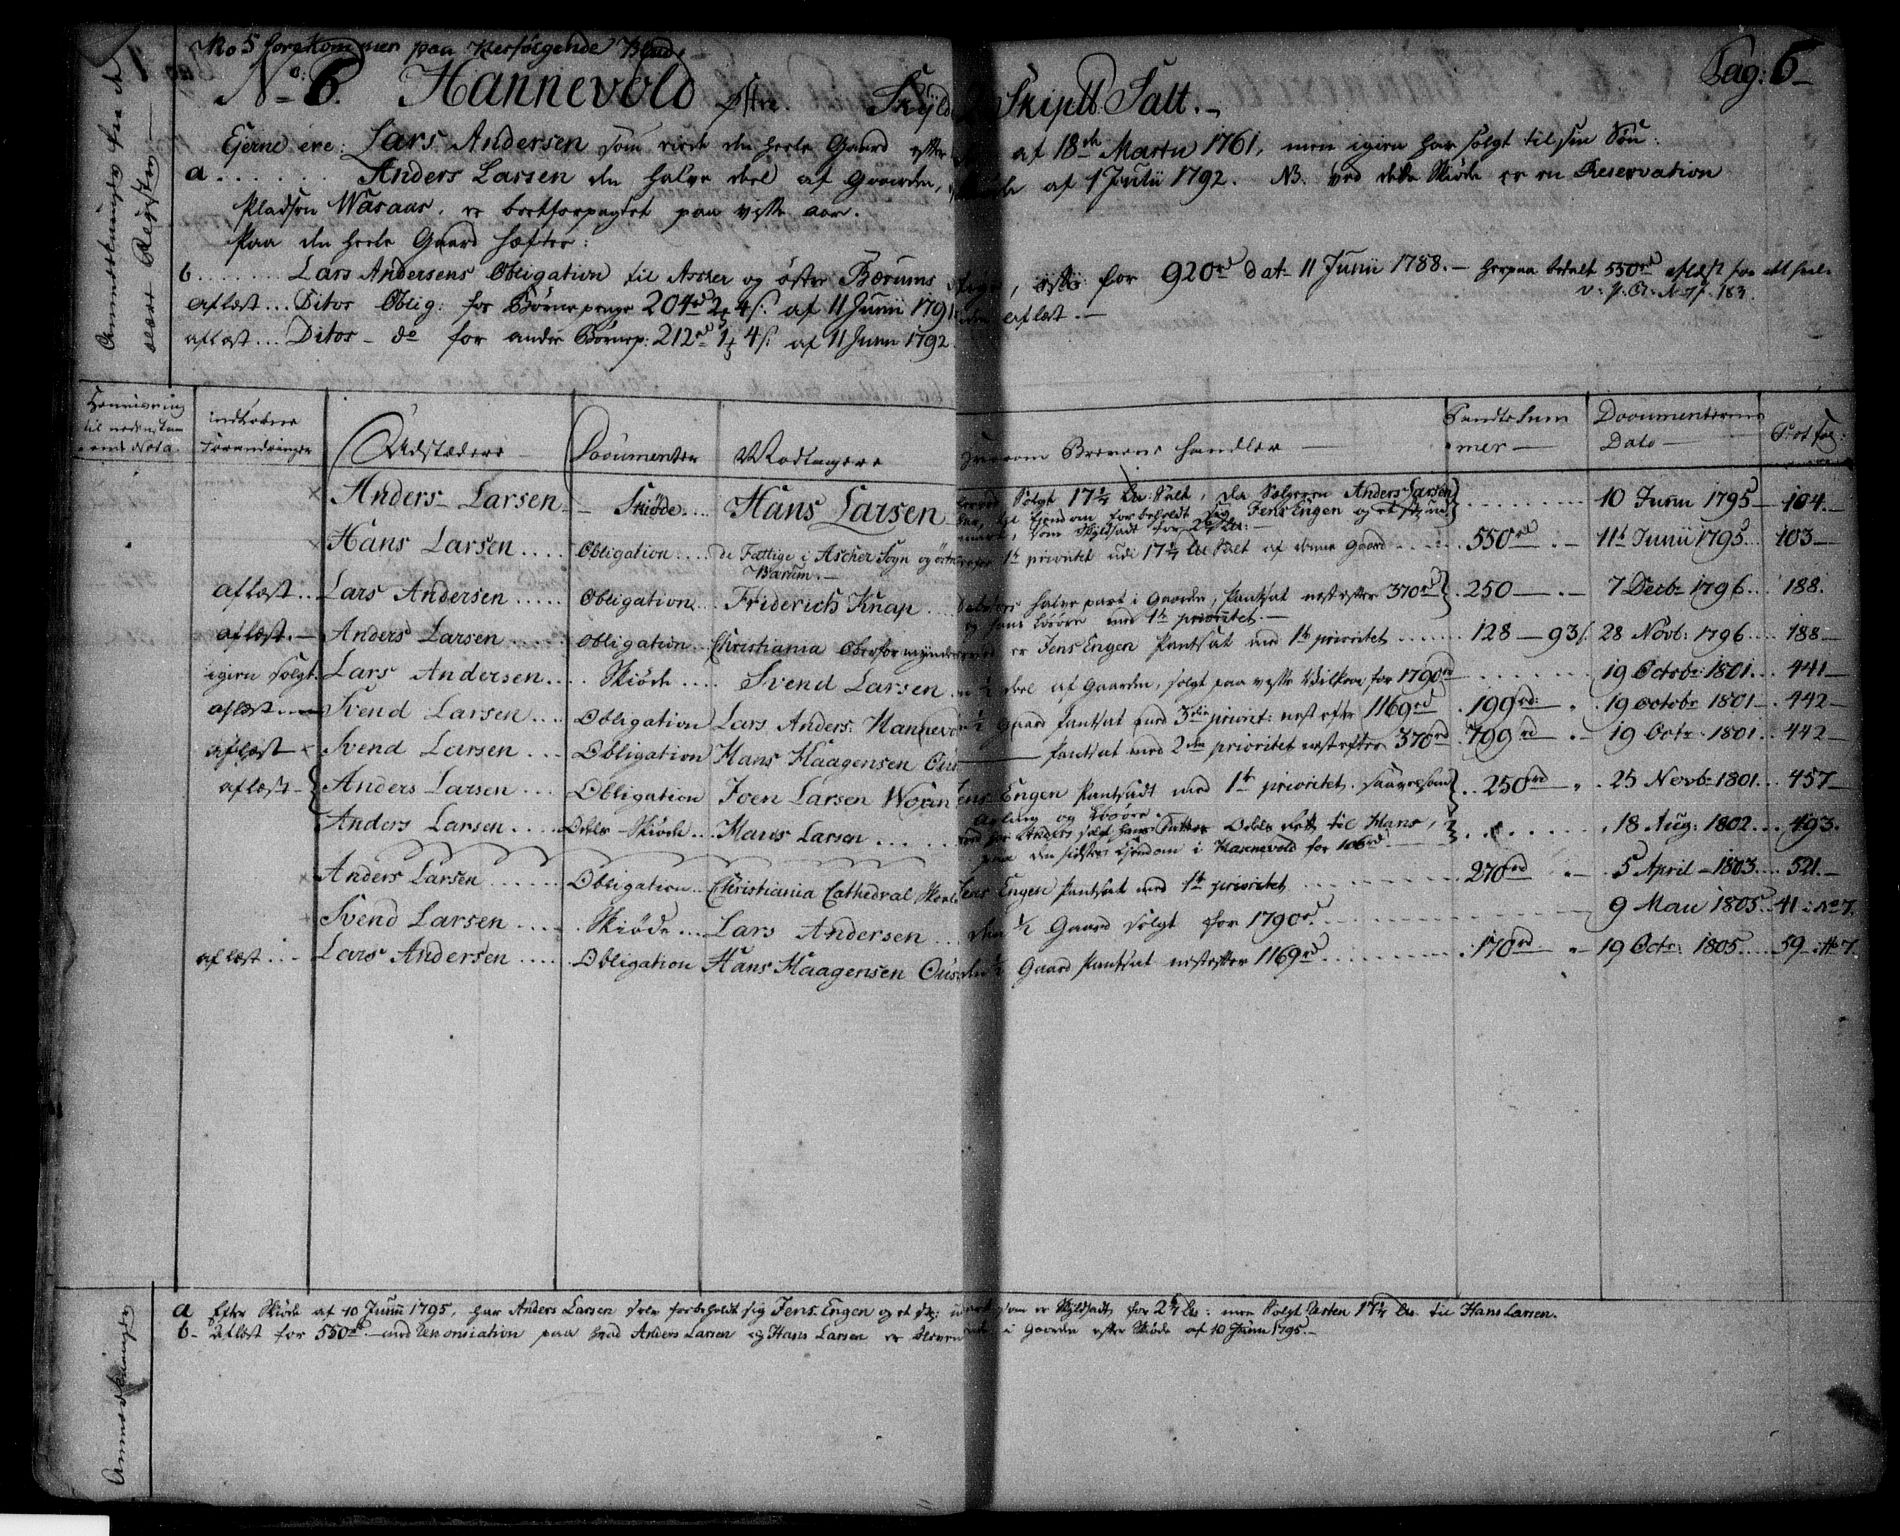 No 5 forekommer paa Nestfølgende Blad.
No 6. Hannevold Østre. Skyld Skipd Salt.
Pag: 6
Anmerkninger fra det
ældre Register
Ejerne ere: Lars Andersen som eiede den heele Gaard efter af 18de Martii 1761, men igien har solgt til sin Søn:
a. Anders Larsen den halve deel af Gaarden, af 1 Junii 1792. NB. ved dette Skiøde er en Reservation
Pladsen Waraas, er bortforpagtet paa visse aar.
Paa den heele Gaard hæfter:
b. Lars Andersens Obligation til Asker og øster Bærums for 920rd dat: 11 Junii 1788. - herpaa betalt 550rd aflæst
v. P. Pr. No 7 f. 183.
aflæst... Ditos Oblig: for Børnepenge 204rd 2 4 s. af 11 Junii 1791 aflæst.
aflæst... Ditos do for andre Børnep: 212rd 1 4 s. af 11 Junii 1792.
Henviisning til nedenstaaende Nota | indtrufne Forandringer | Udstædere | Documenter | Modtagere | Hvorom Brevene handler | Pante Summer | Documenternes Dato | Prot fol:
× Anders Larsen - Skiøde... Hans Larsen - Solgt 17 1/4 Lu: Salt, da Sælgeren Anders Larsen 10 Junii 1795 - 104.
Eiendom forbeholdt sig Jens Engen og et stk:
som Skyldsadt for 2 Lu:
× Hans Larsen.... Obligation... de Fattige i Ascher Sogn og øster Bærum. - 1te prioritet udi 17 1/4 Lu Salt af denne Gaard 550rd 11te Junii 1795.. 103 -
aflæst.. Lars Andersen..... Obligation... Friderich Knap... halve part i Gaarden, Pantsat nest efter 370rd 250 - 7 Decbr 1796.. 188.
og hans Løsøre med 1te prioritet.
aflæst. - Anders Larsen..... Obligation.. Christiania Overformynder er Jens Engen Pantsat med 1te prioritet 128 - 93 s. 28 Novb: 1796... 188 -
igien solgt. Lars Andersen.... Skiøde.... Svend Larsen 1/2 deel af Gaarden, solgt paa visse Vilkaar for 1790rd 19 Octobr: 1801... 441 -
aflæst. Svend Larsen... Obligation Lars Anders: Hannevold 1/2 Gaard Pantsat med 3die priorit: nest efter 1169rd 199rd 19 Octobr 1801 - 442 -
aflæst × Svend Larsen... Obligation Hans Haagensen Pantsat med 2den prioritet nest efter 370rd 799rd 19 Octr: 1801.. 442 -
aflæst - Anders Larsen... Obligation Joen Larsen Jens Engen Pantsadt med 1te prioritet, saavelsom 250rd 25 Novb: 1801... 457 -
Avling og Løsøre.
Anders Larsen..... Odels Skiøde... Hans Larsen... har Anders solgt hans Odels Ret til Hans, 18 Aug: 1802... 493.
paa den sidstes Eiendom i Hannevold for 106rd
× Anders Larsen...... Obligation.. Christiania Cathedral Skole Jens Engen Pantsat med 1te prioritet 270rd 5 April 1803... 521. -
Svend Larsen..... Skiøde... Lars Andersen... den 1/2 Gaard solgt for 1790rd 9 Maii 1805. 41 : No 7.
aflæst... Lars Andersen..... Obligation Hans Haagensen 1/2 Gaard Pantsat nest efter 1169rd 170rd 19 Octr: 1805.... 59 : No 7.
Anmerkninger
a Efter Skiøde af 10 Junii 1795, har Anders Larsen selv forbeholdt sig Jens Engen og et stk: som er Skyldsadt for 2 Lu: men Solgt Resten 17 1/4 Lu til Hans Larsen.
b - Aflæst for 550rd med Renonciation paa hvad Anders Larsen og Hans Larsen er i Gaarden efter Skiøde af 10 Junii 1795. -